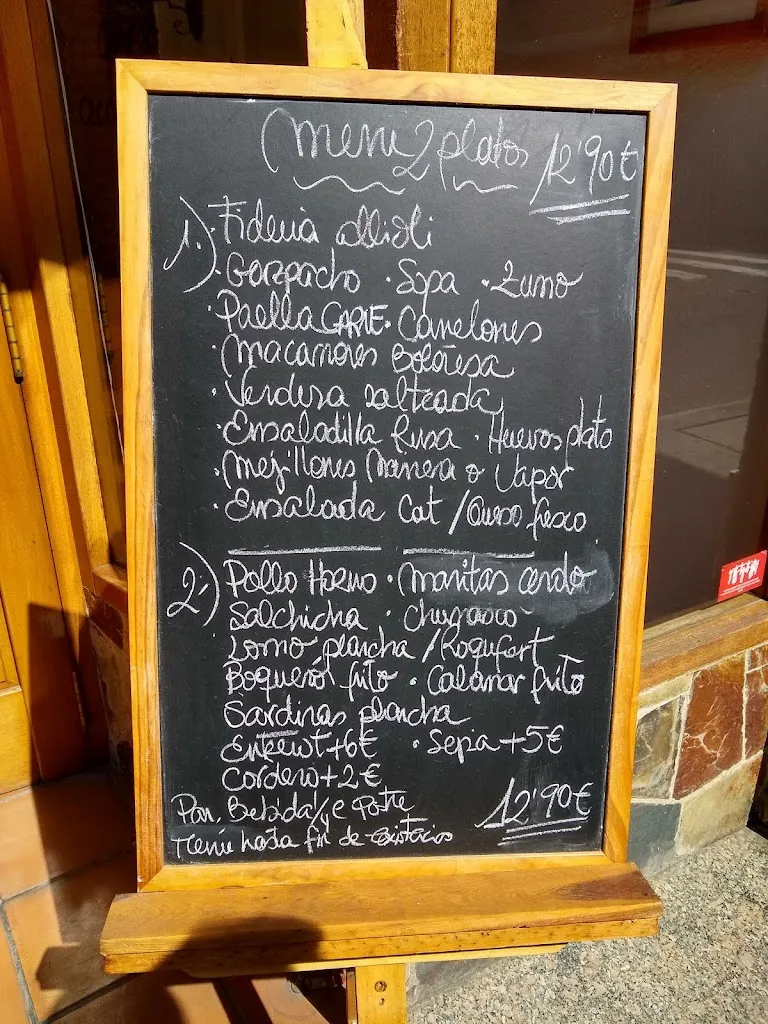 Menu 2 platos 12'90€
1.) · Fideuá allioli
· Gazpacho · Sopa · Zumo
· Paella CARNE · Canelones
· Macarrones Boloñesa
· Verdura salteada
· Ensaladilla Rusa · Huevos plato
· Mejillones Marinera o Vapor
· Ensalada Cat / Queso fresco
2.) Pollo Horno · Manitas cerdo
Salchicha · churrasco
Lomo plancha / Roquefort
Boqueró frito · Calamar frito
Sardinas plancha
Entrecot +6€ · Sepia +5€
Cordero +2€
Pan, Bebida y/e Postre 12'90€
Menú hasta fin de existencias